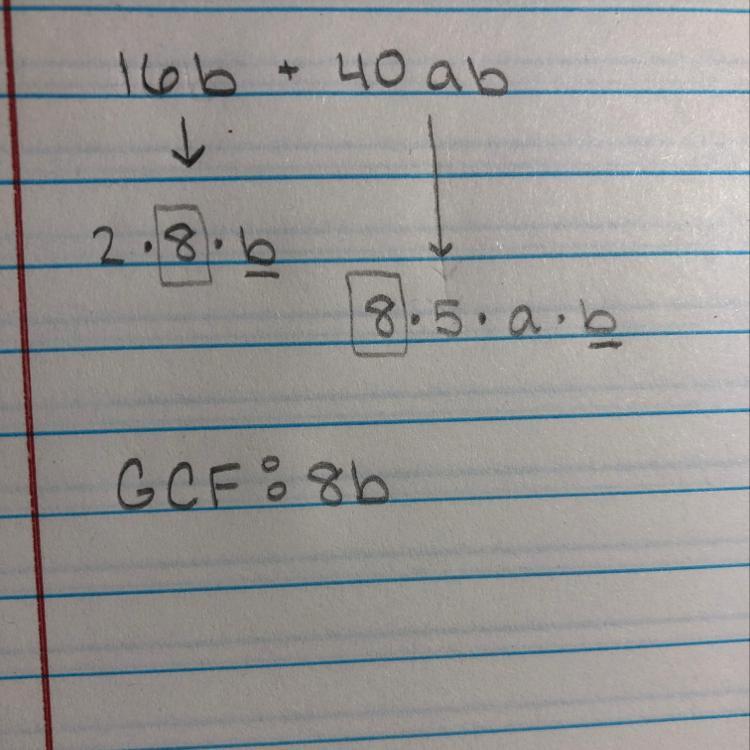 16b + 40ab
2 · 8 · b
8 · 5 · a · b
GCF: 8b